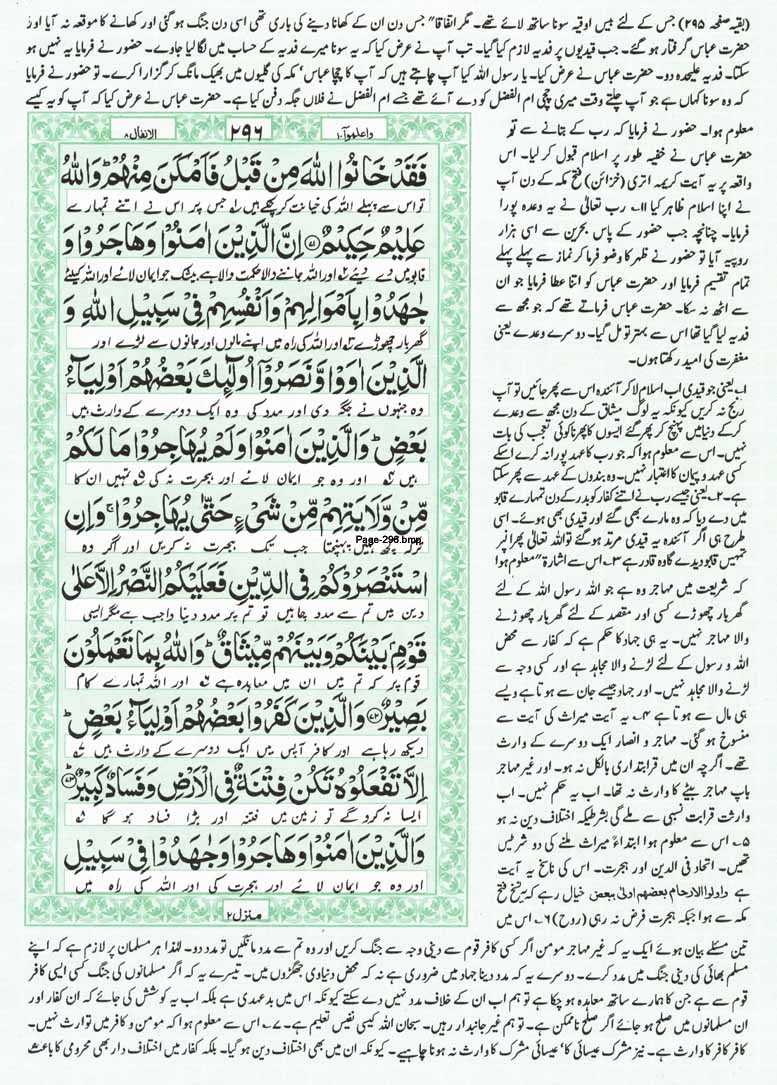 (بقیہ صفحہ ۲۹۵) جس کے لئے بیس اوقیہ سونا ساتھ لائے تھے۔ مگر اتفاقا" جس دن ان کے کھانا دینے کی باری تھی اسی دن جنگ ہو گئی اور کھانے کا موقعہ نہ آیا اور
حضرت عباس گرفتار ہو گئے۔ جب قیدیوں پر فدیہ لازم کیا گیا۔ تب آپ نے عرض کیا کہ یہ سونا میرے فدیہ کے حساب میں لگا لیا جاوے۔ حضور نے فرمایا یہ نہیں ہو
سکتا۔ فدیہ علیحدہ دو۔ حضرت عباس نے عرض کیا۔ یا رسول اللہ کیا آپ چاہتے ہیں کہ آپ کا چچا عباس' مکہ کی گلیوں میں بھیک مانگ کر گزارا کرے۔ تو حضور نے فرمایا
کہ وہ سونا کہاں ہے جو آپ چلتے وقت میری چچی ام الفضل کو دے آئے تھے جسے ام الفضل نے فلاں جگہ دفن کیا ہے۔ حضرت عباس نے عرض کیا کہ آپ کو یہ کیسے
معلوم ہوا۔ حضور نے فرمایا کہ رب کے بتانے سے تو
حضرت عباس نے خفیہ طور پر اسلام قبول کر لیا۔ اس
واقعہ پر یہ آیت کریمہ اتری (خزائن) فتح مکہ کے دن آپ
نے اپنا اسلام ظاہر کیا ۱۱۔ رب تعالیٰ نے یہ وعدہ پورا
فرمایا۔ چنانچہ جب حضور کے پاس بحرین سے اسی ہزار
روپیہ آیا تو حضور نے ظہر کا وضو فرما کر نماز سے پہلے پہلے
تمام تقسیم فرمایا اور حضرت عباس کو اتنا عطا فرمایا جو ان
سے اٹھ نہ سکا۔ حضرت عباس فرماتے تھے کہ جو مجھ سے
فدیہ لیا گیا تھا اس سے بہتر تو مل گیا۔ دوسرے وعدے یعنی
مغفرت کی امید رکھتا ہوں۔
۱۔ یعنی جو قیدی اب اسلام لا کر آئندہ اس سے پھر جائیں تو آپ
رنج نہ کریں کیونکہ یہ لوگ میثاق کے دن مجھ سے وعدے
کر کے دنیا میں پہنچ کر پھر گئے انیسوں کا پھرنا کوئی تعجب کی بات
نہیں۔ اس سے معلوم ہوا کہ جو رب کا عہد پورا نہ کرے اسکے
کسی عہد و پیمان کا اعتبار نہیں۔ وہ بندوں کے عہد سے پھر سکتا
ہے۔ ۲۔ یعنی جیسے رب نے اتنے کفار کو بدر کے دن تمہارے قابو
میں دے دیا کہ وہ مارے بھی گئے اور قیدی بھی ہوئے۔ اسی
طرح ہی اگر آئندہ یہ قیدی مرتد ہو گئے تو اللہ تعالیٰ پھر انپر
تمہیں قابو دیدے گا وہ قادر ہے ۳۔ اس سے اشارۃ" معلوم ہوا
کہ شریعت میں مہاجر وہ ہے جو اللہ رسول اللہ کے لئے
گھر بار چھوڑے کسی اور مقصد کے لئے گھر بار چھوڑنے
والا مہاجر نہیں۔ یہ ہی جہاد کا حکم ہے کہ کفار سے محض
اللہ و رسول کے لئے لڑنے والا مجاہد ہے اور کسی وجہ سے
لڑنے والا مجاہد نہیں۔ اور جہاد جیسے جان سے ہوتا ہے ویسے
ہی مال سے ہوتا ہے ۴۔ یہ آیت میراث کی آیت سے
منسوخ ہو گئی۔ مہاجر و انصار ایک دوسرے کے وارث
تھے۔ اگرچہ ان میں قرابتداری بالکل نہ ہو۔ اور غیر مہاجر
باپ مہاجر بیٹے کا وارث نہ تھا۔ اب یہ حکم نہیں۔ اب
وارثت قرابت نسبی سے ملے گی بشرطیکہ اختلاف دین نہ ہو
۵۔ اس سے معلوم ہوا ابتداءً میراث ملنے کی دو شرطیں
تھیں۔ اتحاد فی الدین اور ہجرت۔ اس کی ناسخ یہ آیت
ہے واولوا الارحام بعضهم اولیٰ ببعض خیال رہے کہ یہ نسخ فتح
مکہ سے ہوا جبکہ ہجرت فرض نہ رہی (روح) ۶۔ اس میں
واعلموآ۱۰
۲۹۶
الانفال۸
فَقَدْ خَانُوا اللّٰهَ مِنْ قَبْلُ فَاَمْكَنَ مِنْهُمْ ؕ وَاللّٰهُ
تو اس سے پہلے اللہ کی خیانت کر چکے ہیں ۱ جس پر اس نے اتنے تمہارے
عَلِيْمٌ حَكِيْمٌ ﴿۷۱﴾ اِنَّ الَّذِيْنَ اٰمَنُوْا وَهَاجَرُوْا وَ
قابو میں دے دیئے ۲ اور اللہ جاننے والا حکمت والا ہے بیشک جو ایمان لائے اور اللہ کیلئے
جٰهَدُوْا بِاَمْوَالِهِمْ وَاَنْفُسِهِمْ فِيْ سَبِيْلِ اللّٰهِ وَ
گھر بار چھوڑے ۳ اور اللہ کی راہ میں اپنے مالوں اور جانوں سے لڑے اور
الَّذِيْنَ اٰوَوْا وَّنَصَرُوْۤا اُولٰٓئِكَ بَعْضُهُمْ اَوْلِيَآءُ
وہ جنہوں نے جگہ دی اور مدد کی وہ ایک دوسرے کے وارث ہیں
بَعْضٍ ؕ وَالَّذِيْنَ اٰمَنُوْا وَلَمْ يُهَاجِرُوْا مَا لَكُمْ
ہیں ۴ اور وہ جو ایمان لائے اور ہجرت نہ کی ۵ تمہیں ان کا
مِّنْ وَّلَايَتِهِمْ مِّنْ شَيْءٍ حَتّٰى يُهَاجِرُوْا ۚ وَاِنِ
ترکہ کچھ نہیں پہنچتا جب تک ہجرت نہ کریں اور اگر وہ
Page-296.bmp
اسْتَنْصَرُوْكُمْ فِي الدِّيْنِ فَعَلَيْكُمُ النَّصْرُ اِلَّا عَلٰى
دین میں تم سے مدد چاہیں تو تم پر مدد دینا واجب ہے مگر ایسی
قَوْمٍۭ بَيْنَكُمْ وَبَيْنَهُمْ مِّيْثَاقٌ ؕ وَاللّٰهُ بِمَا تَعْمَلُوْنَ
قوم پر کہ تم میں ان میں معاہدہ ہے ۶ اور اللہ تمہارے کام
بَصِيْرٌ ﴿۷۲﴾ وَالَّذِيْنَ كَفَرُوْا بَعْضُهُمْ اَوْلِيَآءُ بَعْضٍ ؕ
دیکھ رہا ہے اور کافر آپس میں ایک دوسرے کے وارث ہیں ۷
اِلَّا تَفْعَلُوْهُ تَكُنْ فِتْنَةٌ فِي الْاَرْضِ وَفَسَادٌ كَبِيْرٌ ﴿۷۳﴾
ایسا نہ کرو گے تو زمین میں فتنہ اور بڑا فساد ہو گا ۸
وَالَّذِيْنَ اٰمَنُوْا وَهَاجَرُوْا وَجٰهَدُوْا فِيْ سَبِيْلِ
اور وہ جو ایمان لائے اور ہجرت کی اور اللہ کی راہ میں
منزل۲
تین مسئلے بیان ہوئے ایک یہ کہ غیر مہاجر مومن اگر کسی کافر قوم سے دینی وجہ سے جنگ کریں اور وہ تم سے مدد مانگیں تو مدد دو۔ لہٰذا ہر مسلمان پر لازم ہے کہ اپنے
مسلم بھائی کی دینی جنگ میں مدد کرے۔ دوسرے یہ کہ مدد دینا جہاد میں ضروری ہے نہ کہ محض دنیاوی جھگڑوں میں۔ تیسرے یہ کہ اگر مسلمانوں کی جنگ کسی ایسی کافر
قوم سے ہے جن کا ہمارے ساتھ معاہدہ ہو چکا ہے تو ہم اب ان کے خلاف مدد نہیں دے سکتے کیونکہ اس میں بدعہدی ہے بلکہ اب یہ کوشش کی جائے کہ ان کفار اور
ان مسلمانوں میں صلح ہو جائے اگر صلح ناممکن ہے۔ تو ہم غیر جانبدار رہیں۔ سبحان اللہ کیسی نفیس تعلیم ہے۔ ۷۔ اس سے معلوم ہوا کہ مومن و کافر میں توارث نہیں۔
کافر کافر کا وارث ہے۔ نیز مشرک عیسائی کا' عیسائی مشرک کا وارث نہ ہونا چاہیے۔ کیونکہ ان میں بھی اختلاف دین ہو گیا۔ بلکہ کفار میں اختلاف دار بھی محرومی کا باعث